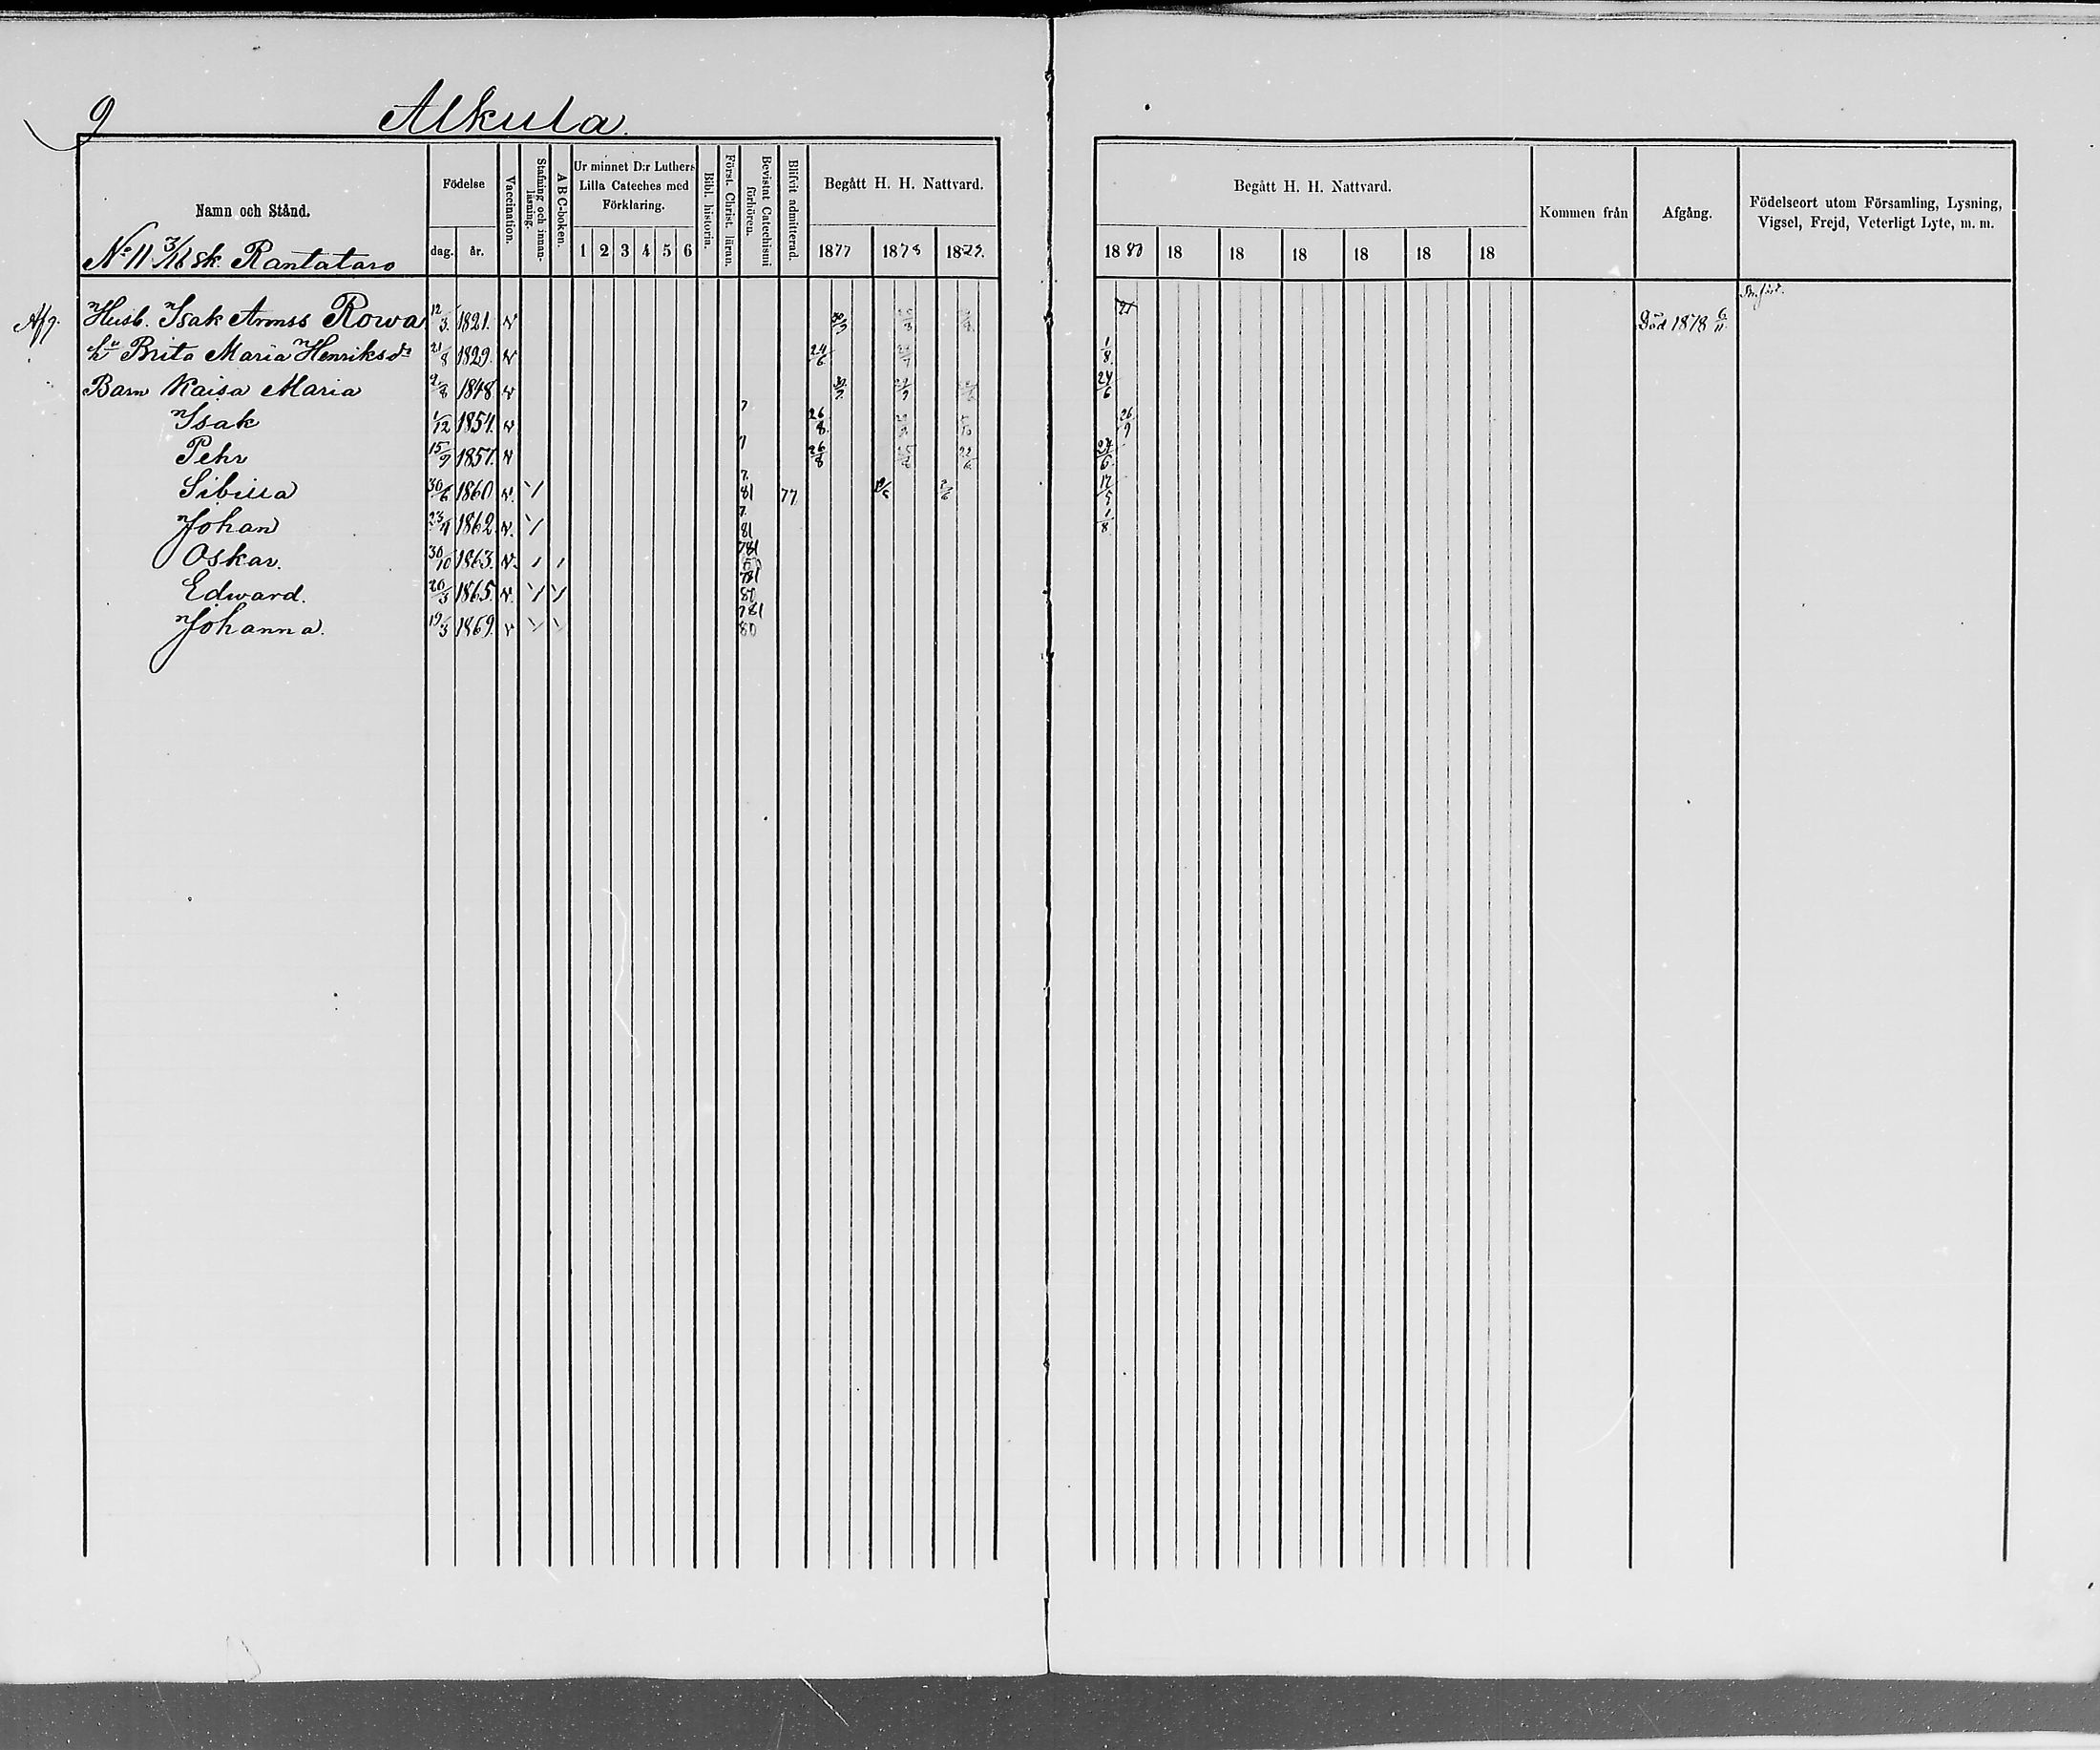 9 Alkula.
Namn och Stånd.
Födelse
dag. år.
Vaccination.
Stafning och innanläsning.
A B C-boken.
Ur minnet D:r Luthers Lilla Cateches med Förklaring.
1 2 3 4 5 6
Bibl. historia.
Först. Christ. läran.
Bevistat Catechismi förhören.
Blifvit admitterad.
Begått H. H. Nattvard.
1877 1878 1879.
Begått H. H. Nattvard.
1880 18 18 18 18 18 18
Kommen från
Afgång.
Födelseort utom Församling, Lysning, Vigsel, Frejd, Veterligt Lyte, m. m.
No 11 3/16 sk. Rantataro
Afg. Husb. Isak Aronss Rowa 12/3 1821. v 30/9 21 Död 1878 6/11
hu Brita Maria Henriksdr 21/8 1829. v 24/6 1/8
Barn Kaisa Maria 9/8 1848 v 24/6
Isak 1/12 1854. v 7 26/8 26/9
Pehr 15/9 1857. v 7 26/8 22/6 24/6
Sibilla 30/6 1860 v 7 81 77 17/5
Johan 23/4 1862 v. 7 81 1/8
Oskar. 30/10 1863. v. 781
Edward. 20/3 1865. v. 781 80
Johanna. 19/3 1869. v 781 80